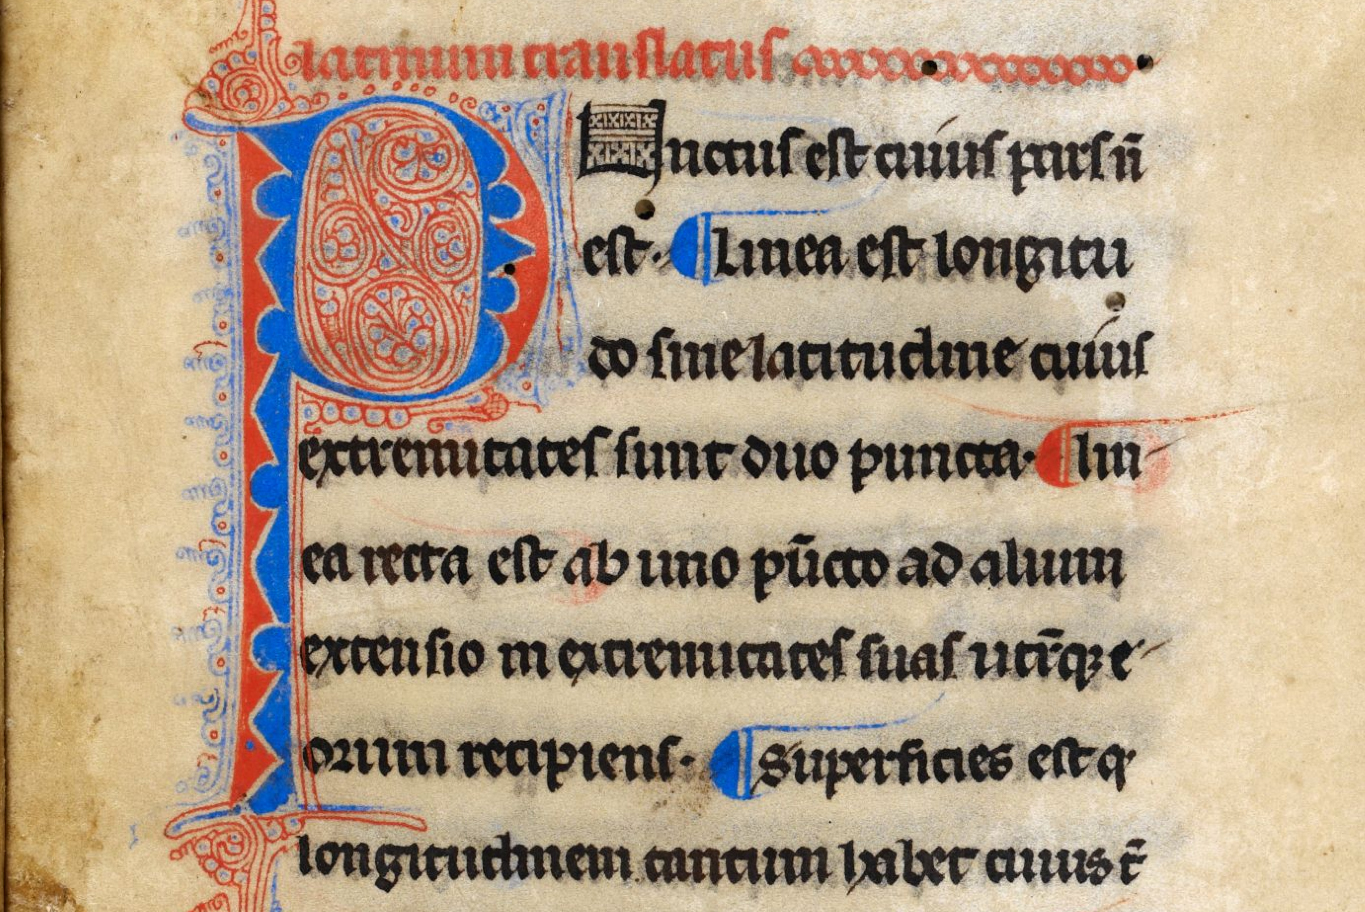 latinum translatus
PUnctus est cuius pars ñ
est. Linea est longitu
do sine latitudine cuius
extremitates sunt duo puncta. lin
ea recta est ab uno pūcto ad alium
extensio in extremitates suas utrīqꝫ e
orum recipiens. Superficies est q
longitudinem tantum habet cuius t̄